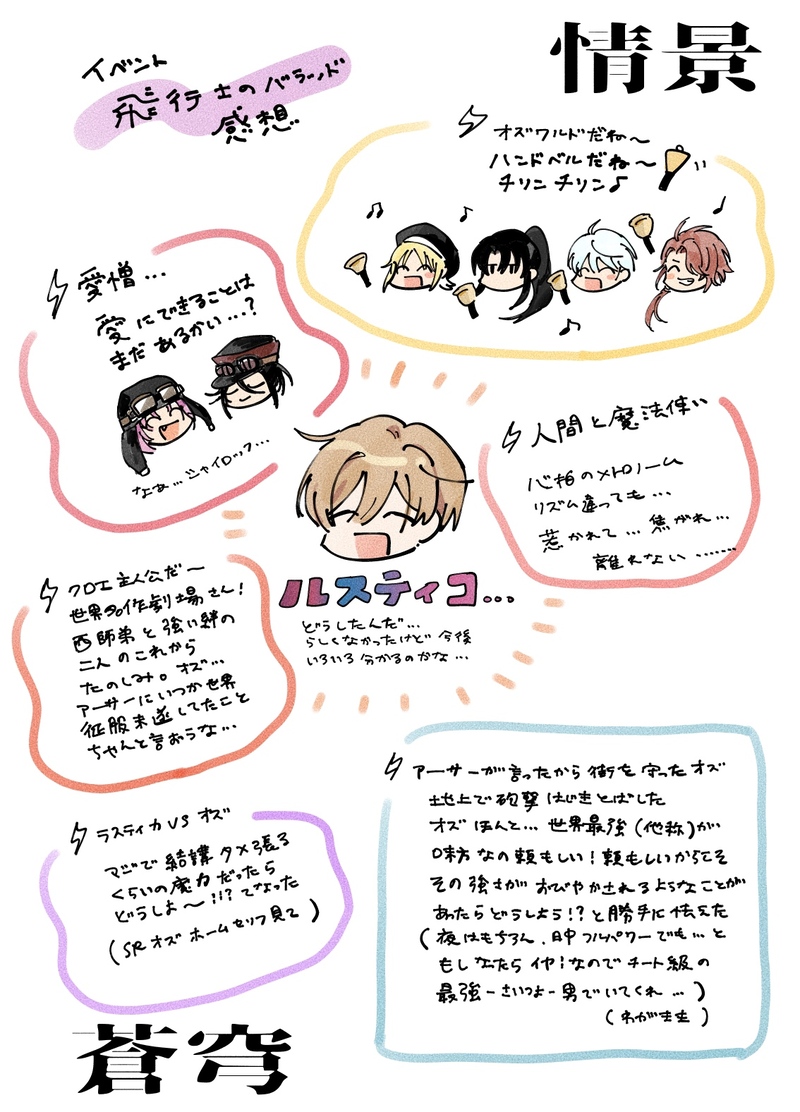 情景
イベント
飛行士のバラッド
感想
オズワルドだね〜
ハンドベルだね〜
チリンチリン♪
愛憎…
愛にできることは
まだあるかい…?
なぁ…シャイロック…
人間と魔法使い
心拍のメトロノーム
リズム違っても…
惹かれて…焦がれ…
離れない……
ルスティコ…
どうしたんだ…
らしくなかったけど今後
いろいろ分かるのかな…
クロエ主人公だ〜
世界名作劇場さん!
西師弟と強い絆の
二人のこれから
たのしみ。オズ…
アーサーにいつか世界
征服未遂してたこと
ちゃんと言おうな…
アーサーが言ったから街を守ったオズ
地上で砲撃はじきとばした
オズほんと…世界最強(他称)が
味方なの頼もしい!頼もしいからこそ
その強さがおびやかされるようなことが
あったらどうしよう!?と勝手に怯えた
(夜はもちろん、日中フルパワーでも…と
もしなったらイヤ!なのでチート級の
最強-さいつよ-男でいてくれ…)
(わがまま)
ラスティカVSオズ
マジで結構タメ張る
くらいの魔力だったら
どうしよ〜!!?てなった
(SRオズホームセリフ見て)
蒼穹